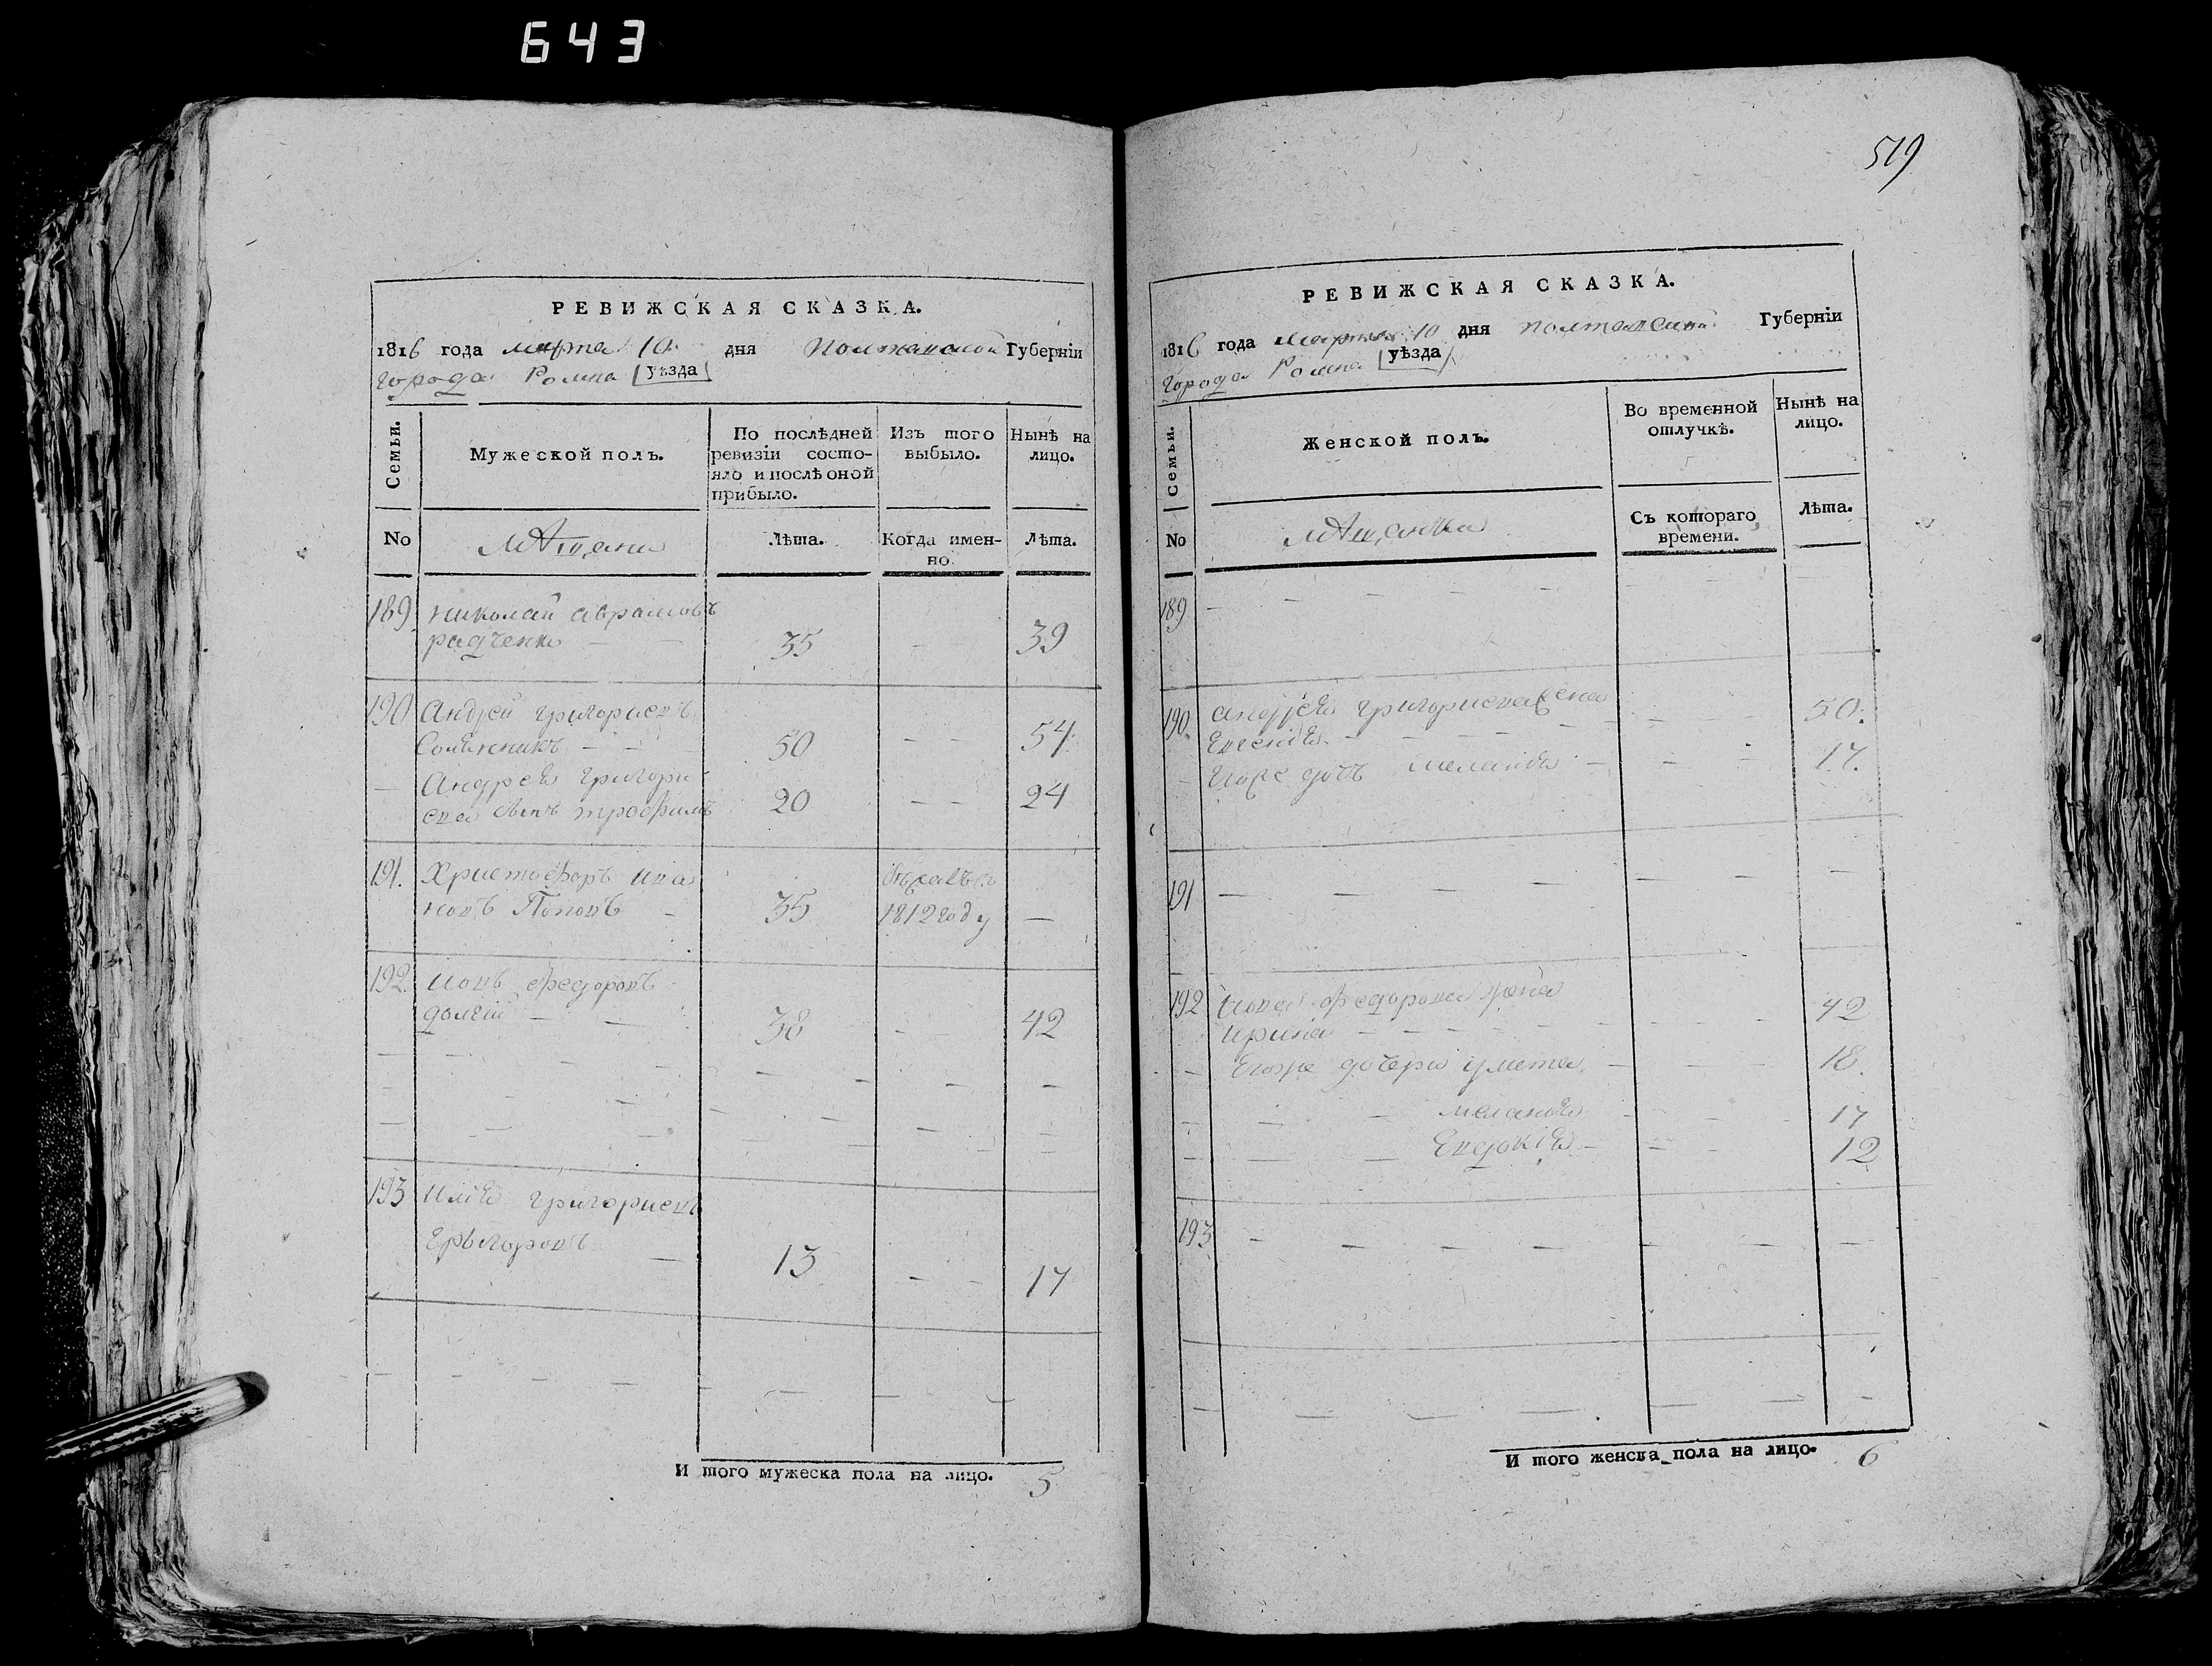 643
РЕВИЖСКАЯ СКАЗКА.
1816 года марта 10 дня Полтавской Губерніи
города Ромна уѣзда
Семьи.
Мужеской полъ.
По послѣдней
ревизіи состо-
яло и послѣ оной
прибыло.
Изъ того
выбыло.
Нынѣ на
лицо.
No
мѣщане
Лѣта.
Когда имен-
но.
Лѣта.
189 николай аврамовъ
радченко — — 35 — 39
190 Андрей григориевъ
— — 50 — — 54
— Андрея григори
ева сынъ трофимъ 20 — — 24
191. Христофоръ ива
новъ Поповъ — 35 1812 году —
192 иовъ федоровъ
долгий — — 38 — — 42
193 илия григориевъ
— 13 — — 17
И того мужеска пола на лицо. 5
519
РЕВИЖСКАЯ СКАЗКА.
1816 года марта 10 дня полтавской Губерніи
города Ромна уѣзда
Семьи.
Женской полъ.
Во временной
отлучкѣ.
Нынѣ на
лицо.
No
мѣщанки
Съ котораго
времени.
Лѣта.
189 — — — — —
190. андрея григориева жена
Евгения — — — — 50.
— Его же дочь мелания — — — 17.
191 — — — — — — —
192 иова федорова жена
ирина — — — — 42
— Его же дочери улита — — — 18.
— — мелания — — 17
— — Евдокия — — — 12
193 — — — — — — —
И того женска пола на лицо. 6